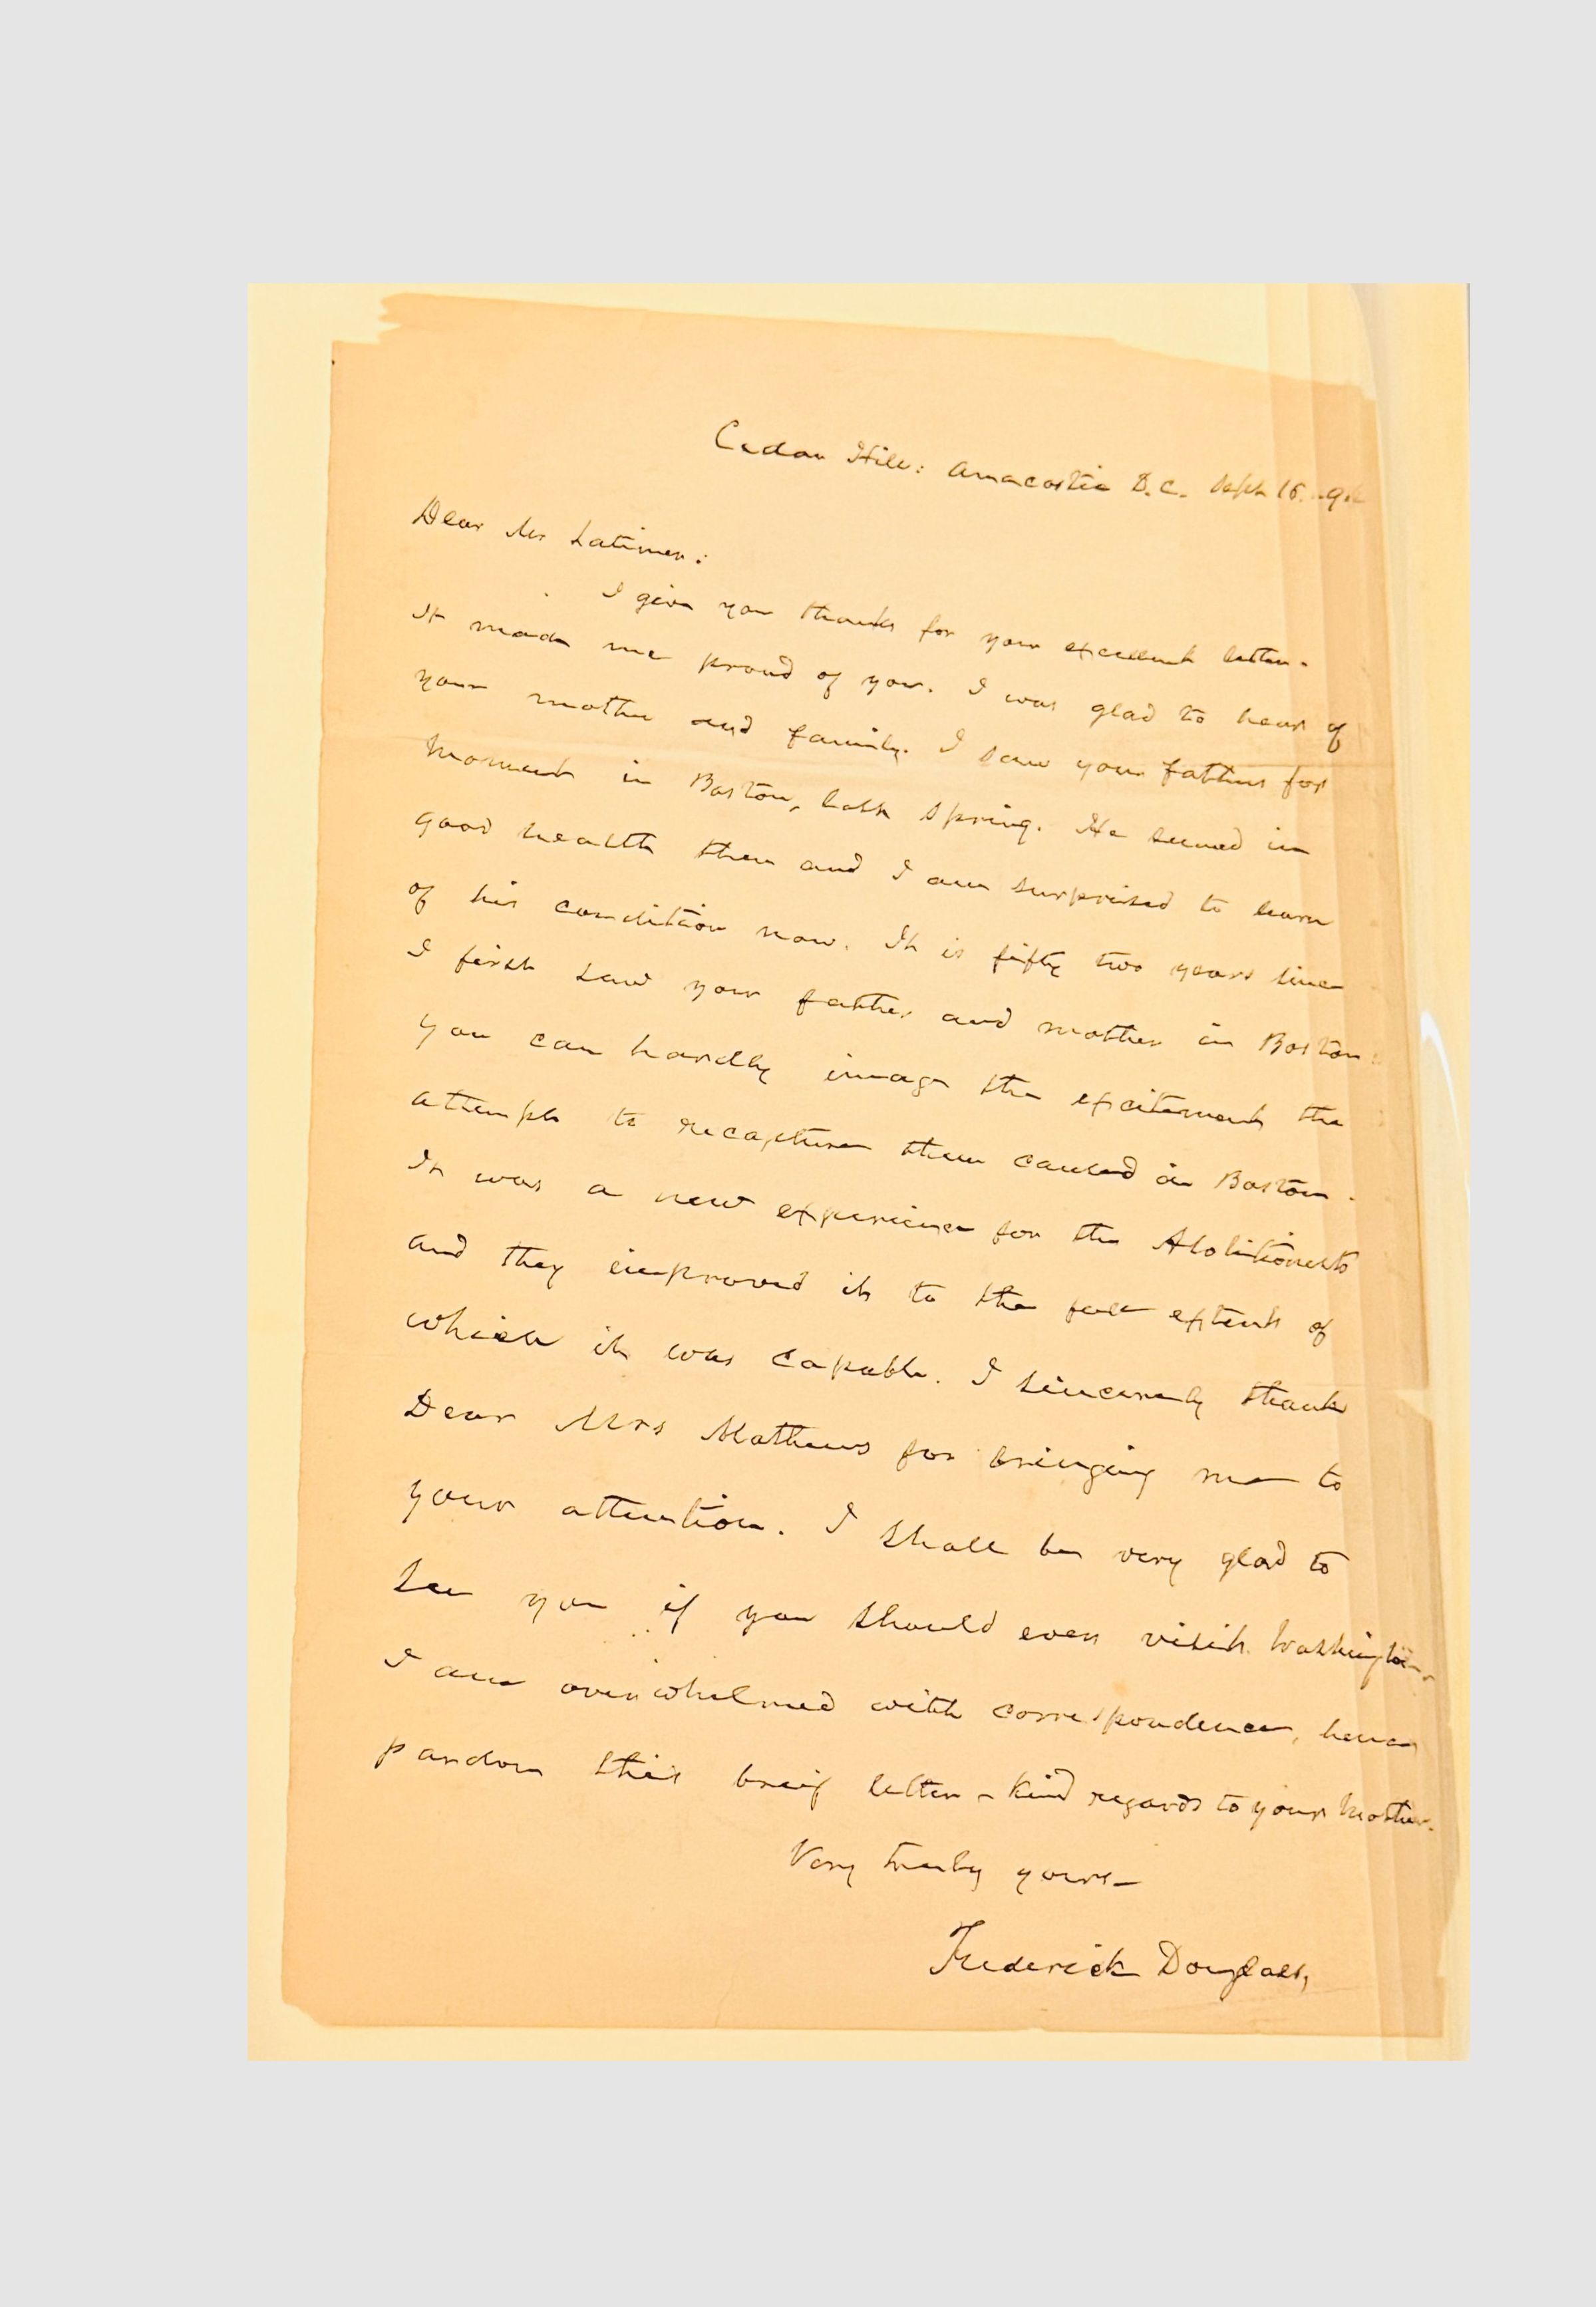 Cedar Hill: Anacostia D.C. Sept 16.
Dear Mr Latimer:
I give you thanks for your excellent letter.
It made me proud of you. I was glad to hear of
your mother and family. I saw your father for
moment in Boston, last spring. He seemed in
good health then and I am surprised to learn
of his condition now. It is fifty two years since
I first saw your father and mother in Boston.
you can hardly image the excitement the
attempt to recapture them caused in Boston.
It was a new experience for the Abolitionists
and they improved it to the full extent of
which it was capable. I sincerely thank
Dear Mrs Mathews for bringing me to
your attention. I shall be very glad to
see you if you should ever visit Washington.
I am overwhelmed with correspondence, hence
pardon this breif letter - Kind regards to your mother.
Very truly yours -
Frederick Douglass,